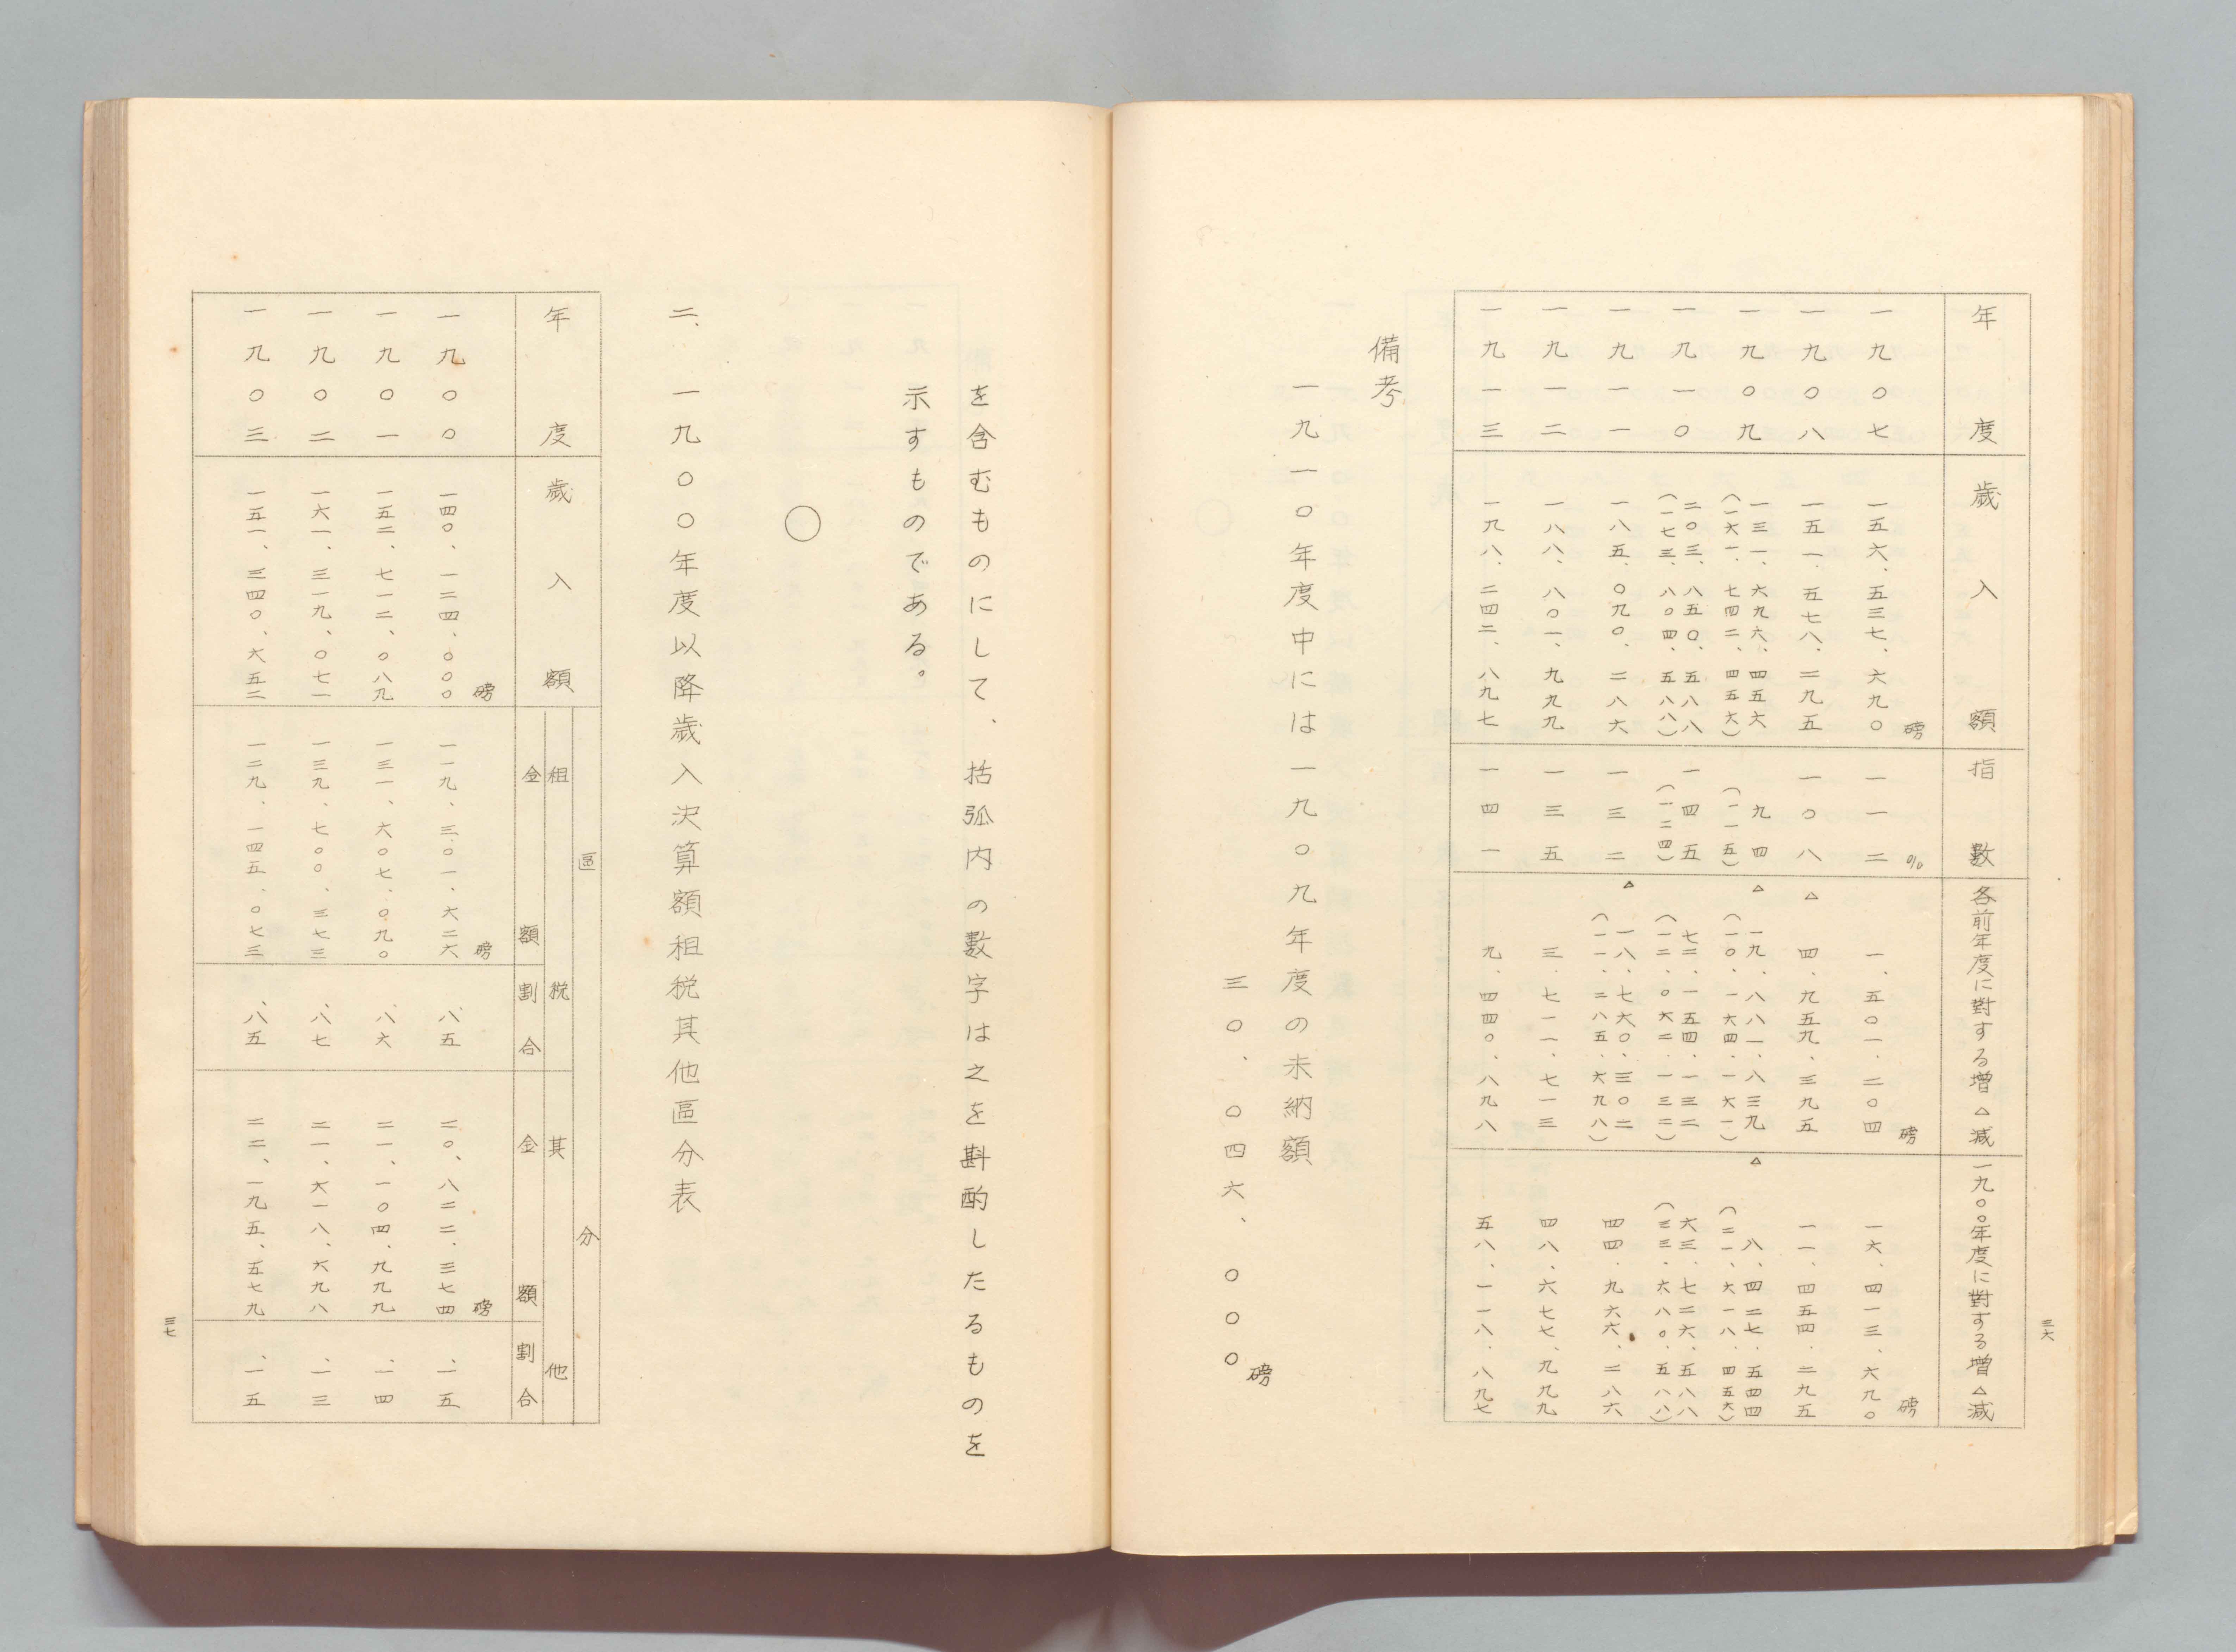 三六
年度 歳入額 指數 各前年度に對する増△減 一九〇〇年度に對する増△減
磅 % 磅 磅
一九〇七 一五六、五三七、六九〇 一一二 一、五〇一、二〇四 一六、四一三、六九〇
一九〇八 一五一、五七八、二九五 一〇八 △四、九五九、三九五 一一、四五四、二九五
一九〇九 一三一、六九六、四五六 九四 △一九、八八一、八三九 △八、四二七、五四四
(一六一、七四二、四五六) (一一五) (一〇、一六四、一六一) (二一、六一八、四五六)
一九一〇 二〇三、八五〇、五八八 一四五 七二、一五四、一三二 六三、七二六、五八八
(一七三、八〇四、五八八) (一二四) (一二、〇六二、一三二) (三三、六八〇、五八八)
一九一一 一八五、〇九〇、二八六 一三二 △一八、七六〇、三〇二 四四、九六六、二八六
(一一、二八五、六九八)
一九一二 一八八、八〇一、九九九 一三五 三、七一一、七一三 四八、六七七、九九九
一九一三 一九八、二四二、八九七 一四一 九、四四〇、八九八 五八、一一八、八九七
備考
一九一〇年度中には一九〇九年度の未納額
三〇、〇四六、〇〇〇磅
を含むものにして、括弧内の數字は之を斟酌したるものを
示すものである。
〇
二、一九〇〇年度以降歳入決算額租税其他區分表
區分
租税 其他
年度 歳入額 金額 割合 金額 割合
磅 磅 磅
一九〇〇 一四〇、一二四、〇〇〇 一一九、三〇一、六二六 、八五 二〇、八二二、三七四 、一五
一九〇一 一五二、七一二、〇八九 一三一、六〇七、〇九〇 、八六 二一、一〇四、九九九 、一四
一九〇二 一六一、三一九、〇七一 一三九、七〇〇、三七三 、八七 二一、六一八、六九八 、一三
一九〇三 一五一、三四〇、六五二 一二九、一四五、〇七三 、八五 二二、一九五、五七九 、一五
三七